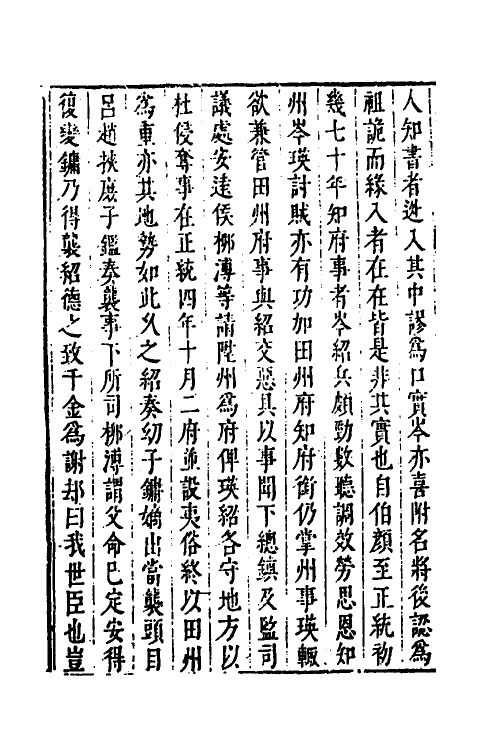 人知書者迯入其中謬爲口實岑亦喜附名將後認爲
祖詭而緣入者在在皆是非其實也自伯顏至正統初
幾七十年知府事者岑紹兵頗勁数聽調效勞思恩知
州岑瑛討賊亦有功加田州府知府銜仍掌州事瑛輙
欲兼管田州府事與紹交惡具以事聞下總鎮及監司
議處安逺侯桞溥等請陞州爲府俾瑛紹各守地方以
杜侵奪事在正統四年十月二府並設夷俗終以田州
爲重亦其地勢如此乆之紹奏幼子鏞嫡出當襲頭目
呂趙挾庶子鑑奏襲事下所司桞溥謂父命已定安得
復變鏞乃得襲紹德之致千金爲謝却曰我世臣也豈